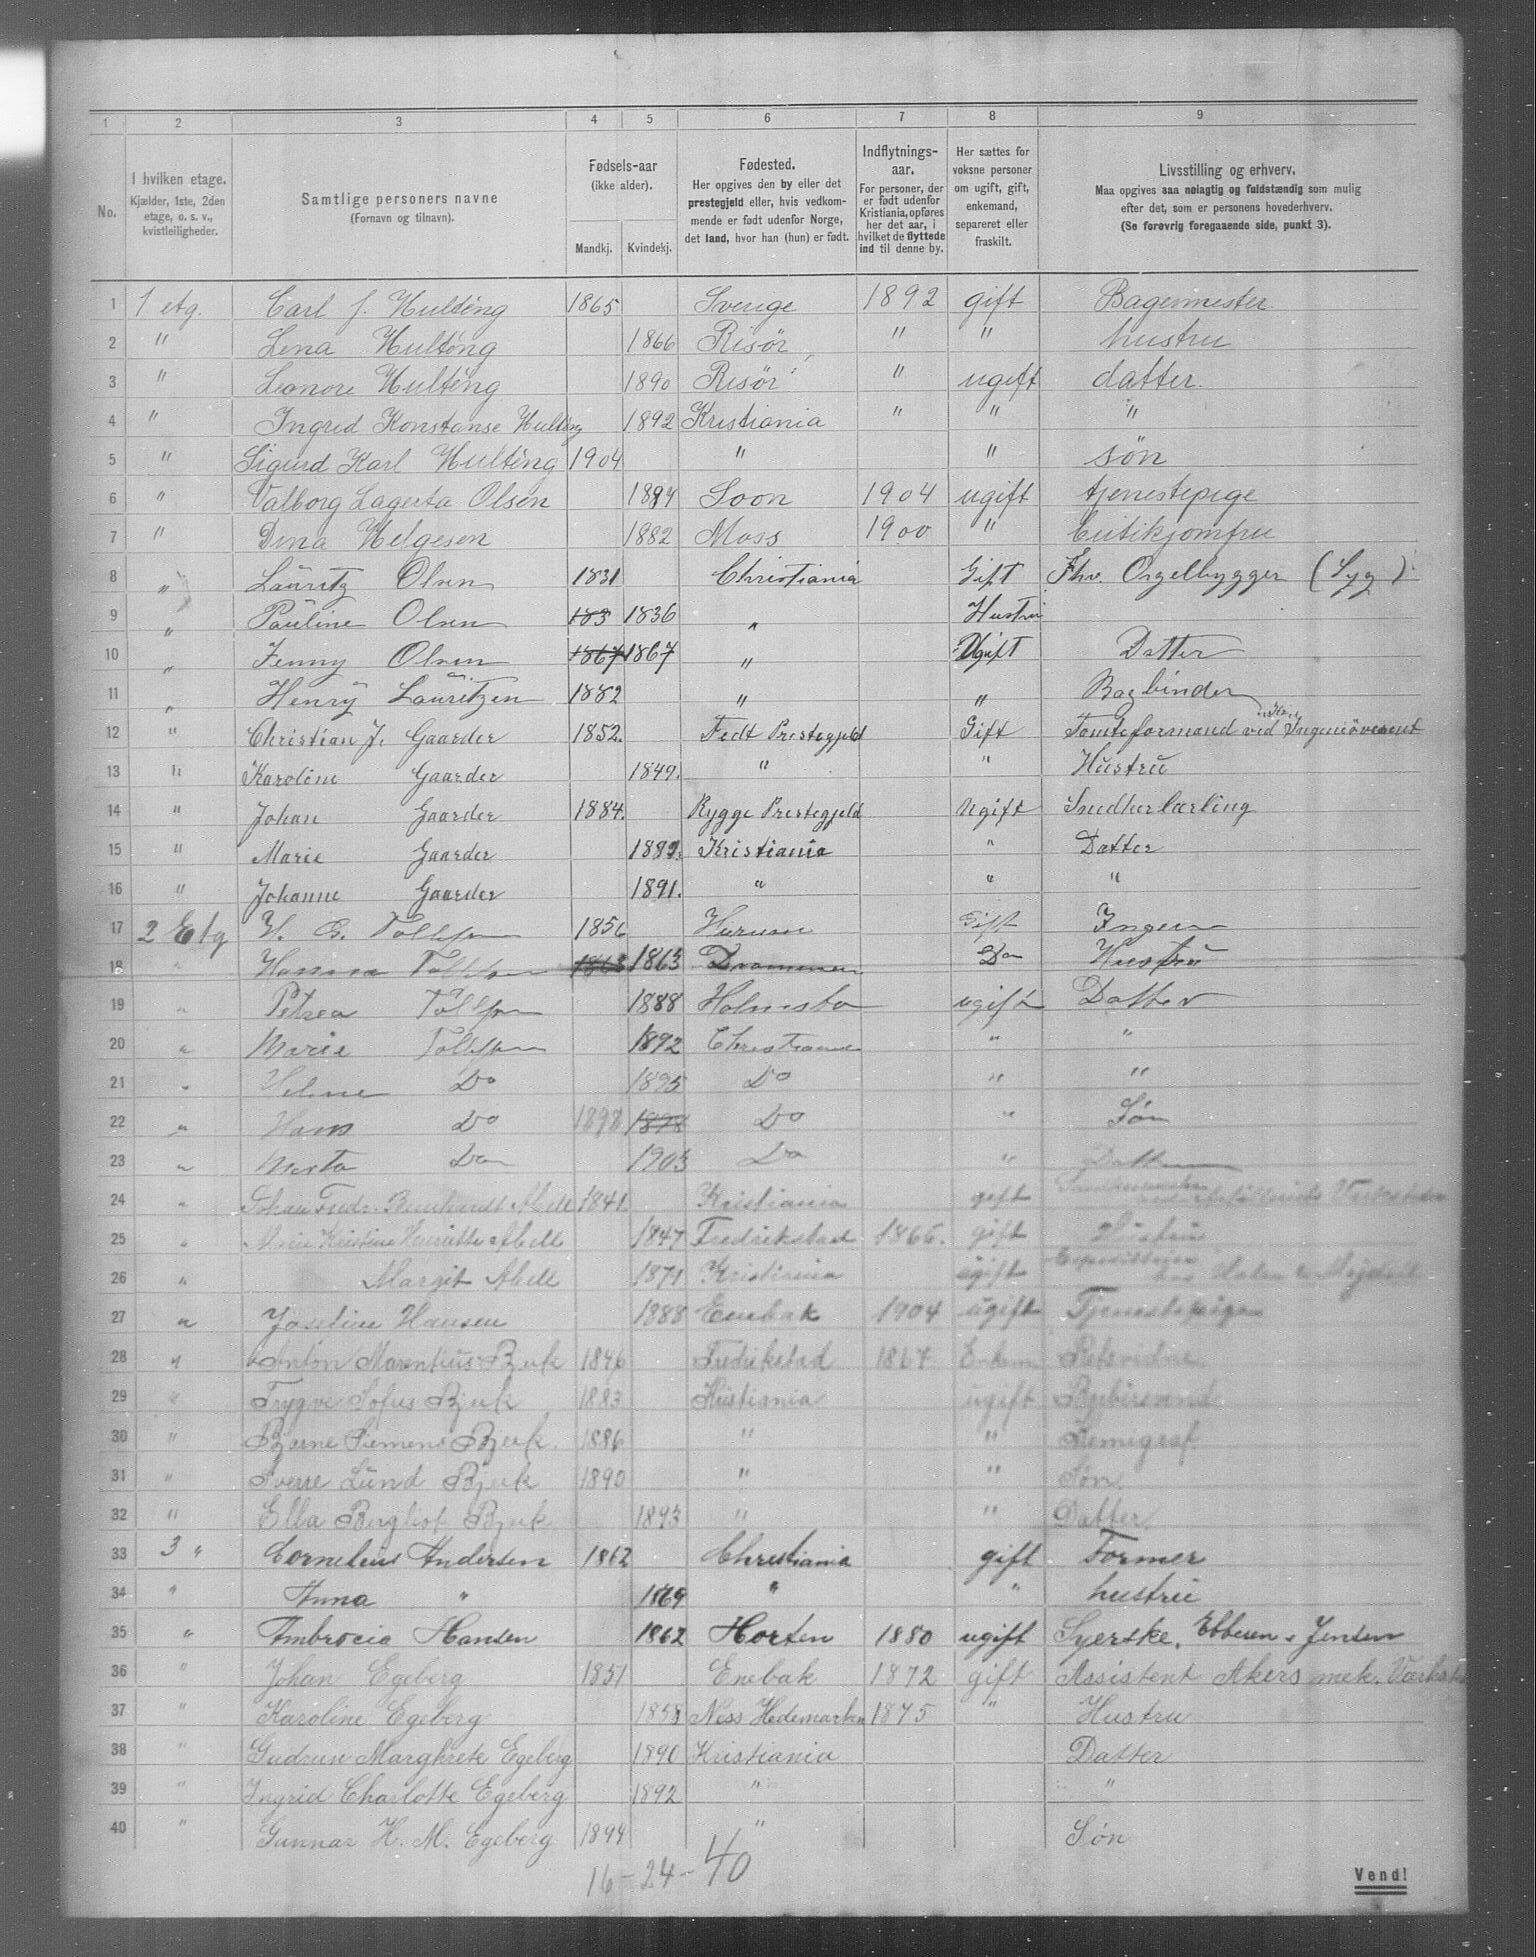 1 2 3 4 5 6 7 8 9
No.
I hvilken etage.
Kjælder, 1ste, 2den
etage, o. s. v.,
kvistleiligheder.
Samtlige personers navne
(Fornavn og tilnavn).
Fødsels-aar
(ikke alder).
Mandkj. Kvindekj.
Fødested.
Her opgives den by eller det
prestegjeld eller, hvis vedkom-
mende er født udenfor Norge,
det land, hvor han (hun) er født.
Indflytnings-
aar.
For personer, der
er født udenfor
Kristiania, opføres
her det aar, i
hvilket de flyttede
ind til denne by.
Her sættes for
voksne personer
om ugift, gift,
enkemand,
separeret eller
fraskilt.
Livsstilling og erhverv.
Maa opgives saa nøiagtig og fuldstændig som mulig
efter det, som er personens hovederhverv.
(Se forøvrig foregaaende side, punkt 3).
1 1 etg. Carl J. Hulténg 1865 Sverige 1892 gift Bagermester
2 " Lena Hulténg 1866 Risör " " hustru
3 " Leonore Hulténg 1890 Risör " ugift datter
4 " Ingrid Konstanse Hulténg 1892 Kristiania " " "
5 " Sigurd Karl Hulténg 1904 " " søn
6 " Valborg Lagerta Olsen 1884 Soon 1904 ugift tjenestepige
7 " Dina Helgesen 1882 Moss 1900 " Butikjomfru
8 " Lauritz Olsen 1831 Christiania Gift Fhv. Orgelbygger (Syg)
9 " Pauline Olsen 183 1836 " Hustru
10 " Jenny Olsen 1867 1867 " Ugift Datter
11 " Henry Lauritzen 1882 " " Bogbinder
12 " Christian J. Gaarder 1852. Fedt Prestegjeld Gift Tomteformand ved Ingeniörvesent
13 " Karoline Gaarder 1849. " " Hustru
14 " Johan Gaarder 1884. Rygge Prestegjeld Ugift Snedkerlærling
15 " Marie Gaarder 1889. Kristiania " Datter
16 " Johanne Gaarder 1891. " " "
17 2 Etg H. G. Tollefsen 1856 Hurum Gift
18 " Hanna Tollefsen 1863 1863 Drammen Do Hustru
19 " Petrea Tollefsen 1888 Holmsbo ugift Datter
20 " Marie Tollefsen 1892 Christiania " "
21 " Do 1895 Do " "
22 " Hans Do 1898 1898 Do " Søn
23 " Do 1903 Do " Datter
24 " Johan Fredr. Bernhardt Abell 1841. Kristiania gift
25 " Marie Kristine Henriette Abell 1847 Fredrikstad 1866. gift Hustru
26 " Margit Abell 1871 Kristiania ugift
27 " Josefine Hansen 1888 Enebak 1904 ugift Tjenestepige
28 " Anton Marentius Bjerk 1846 Fredrikstad 1867 Enkem. Retsvidne
29 " Trygve Sofus Bjerk 1883 Kristiania ugift
30 " Bjarne Siemens Bjerk 1886 " " Kemigraf
31 " Sverre Lund Bjerk 1890 " " Søn
32 " Ella Bergliot Bjerk 1893 " " Datter
33 3 " Cornelius Andersen 1862 Christiania gift Former
34 " Anna " 1869 " " hustru
35 " Ambrocia Hansen 1862 Horten 1880 ugift Syerske, Ebbesen & Jensen
36 " Johan Egeberg 1851 Enebak 1872 gift Assistent Akers mek. Værksted
37 " Karoline Egeberg 1858 Ness Hedemarken 1875 " Hustru
38 " Gudrun Marghrete Egeberg 1890 Kristiania Datter
39 " Ingrid Charlotte Egeberg 1892 " "
40 " Gunnar H. M. Egeberg 1894 " Søn
16-24-40
Vend!